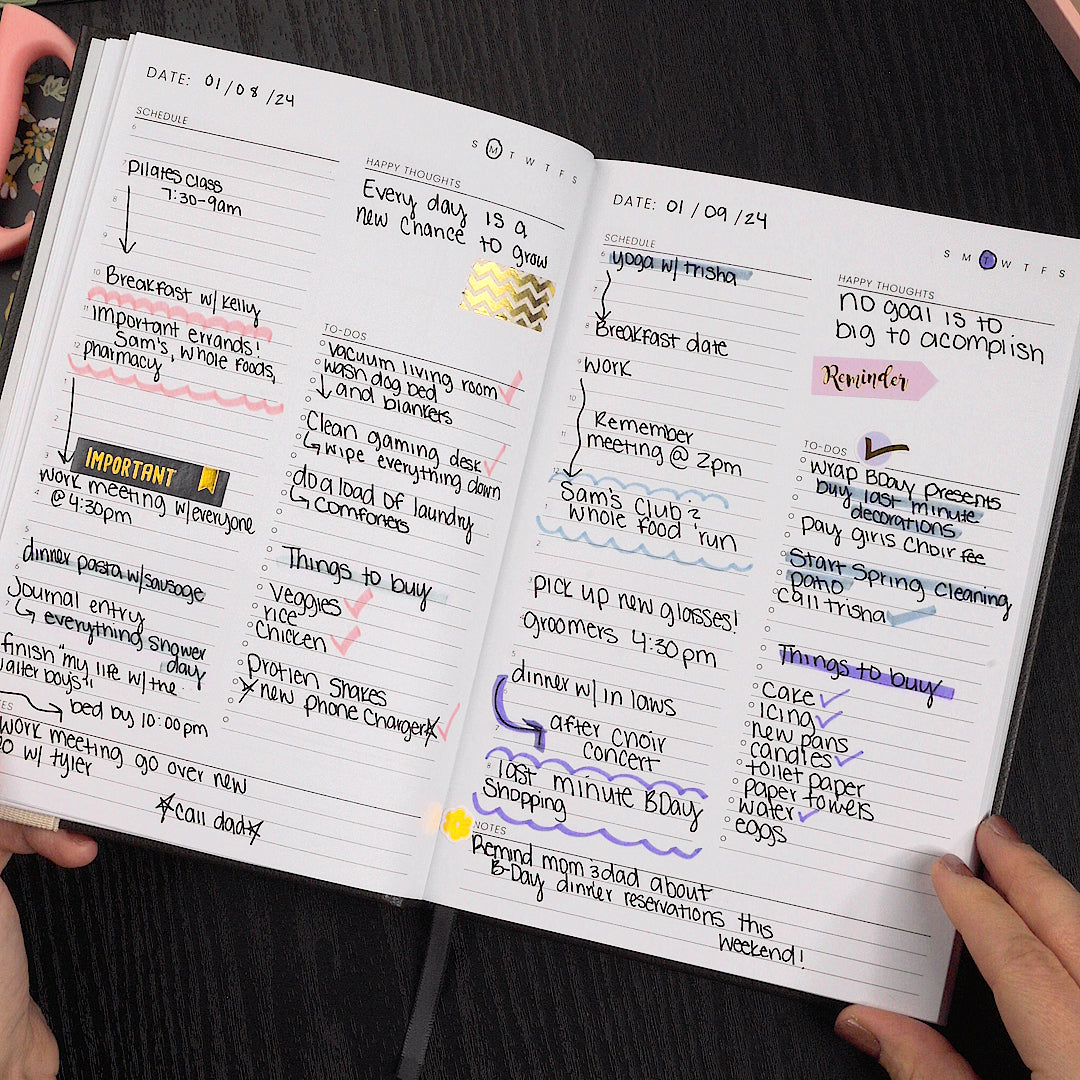 DATE: 01/08/24
S M T W T F S
SCHEDULE
6
7
Pilates class
7:30-9am
8
9
10
Breakfast w/ Kelly
11
Important errands!
Sam's, whole foods,
12
pharmacy
1
2
3
IMPORTANT
work meeting w/everyone
4
@ 4:30pm
5
dinner pasta w/sausage
Journal entry
7
↳ everything shower
day
finish "my life w/ the
walter boys"
bed by 10:00pm
work meeting go over new
w/ tyler
☆call dad☆
HAPPY THOUGHTS
Every day is a
new chance to grow
TO-DOS
vacuum living room ✓
wash dog bed
↓ and blankets
Clean gaming desk ✓
↳ wipe everything down
do a load of laundry
↳ comforters
Things to buy
Veggies ✓
rice
Chicken ✓
Protien Shakes
☆new phone charger☆ ✓
DATE: 01/09/24
S M T W T F S
SCHEDULE
6
yoga w/ trisha
8
Breakfast date
9
work
10
Remember
11
meeting @ 2pm
12
Sam's Club &
1
whole food run
2
3
pick up new glasses!
groomers 4:30pm
5
dinner w/ in laws
7
after choir
concert
8
last minute BDay
Shopping
NOTES
Remind mom & dad about
B-Day dinner reservations this
weekend!
HAPPY THOUGHTS
no goal is to
big to acomplish
Reminder
TO-DOS
✓
wrap BDay presents
buy last minute
decorations
pay girls choir fee
Start Spring Cleaning
patio
call trisha ✓
Things to buy
Cake ✓
icing ✓
new pans
candles ✓
toilet paper
paper towels
water ✓
eggs